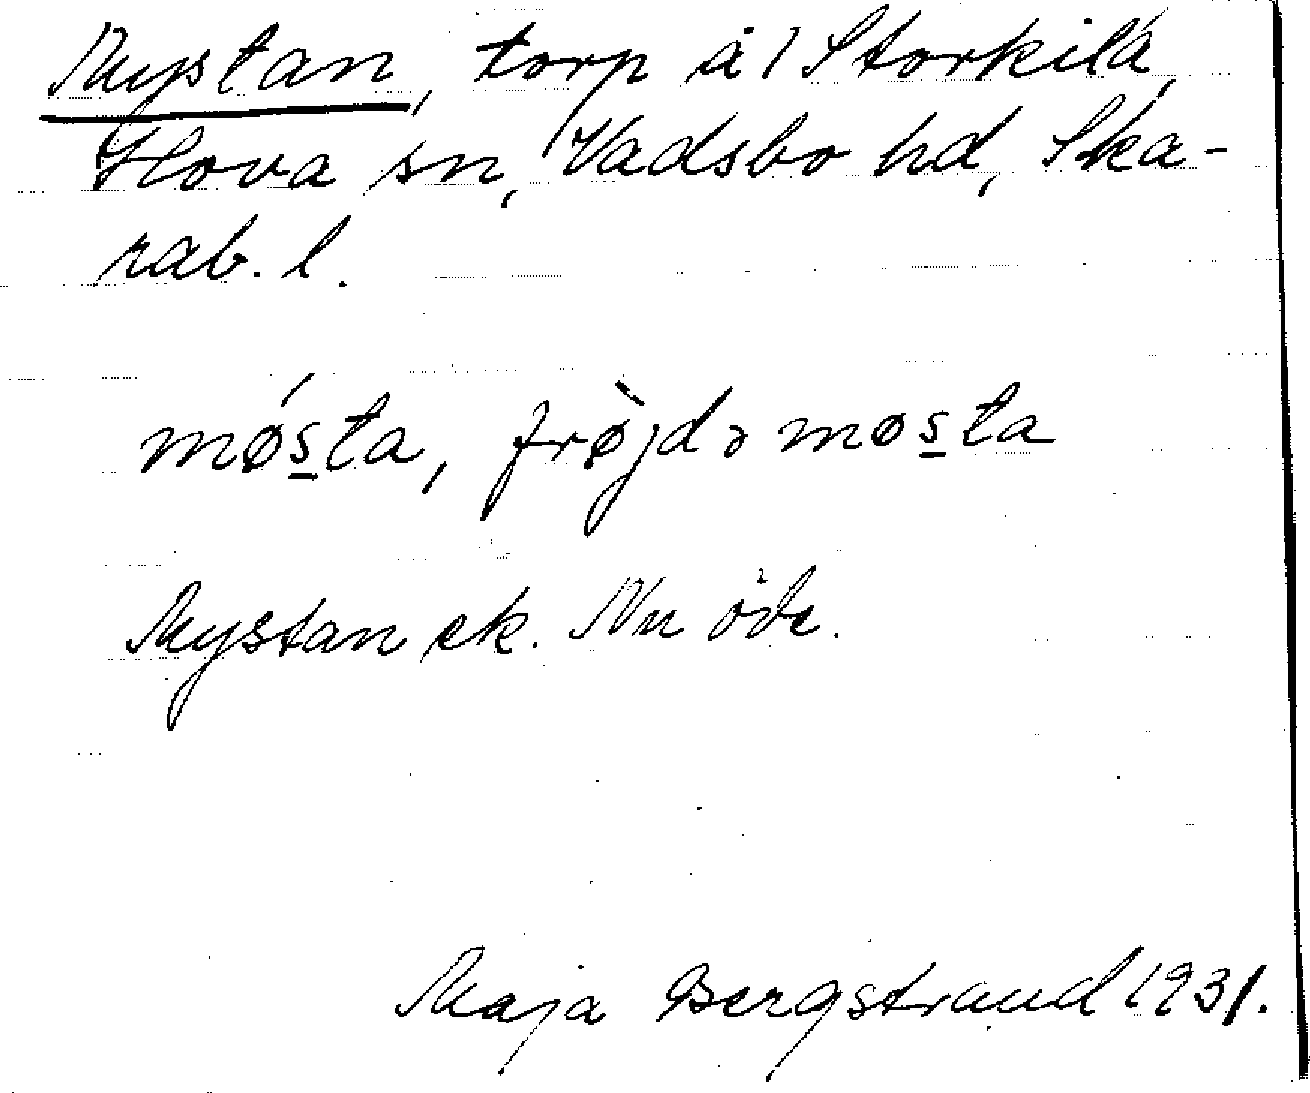 Mystan, torp å / Storkila,
Hova sn, Vadsbo hd, Ska-
rab. l.
mǿs̲ta, frø̀jdə møs̲ta
Mystan ek. Nu öde.
Maja Bergstrand 1931.